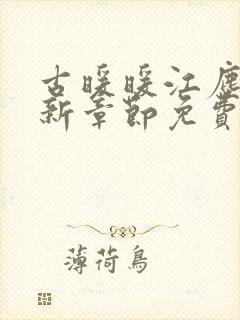 古暖暖江塵
新章節免費
薄荷鳥